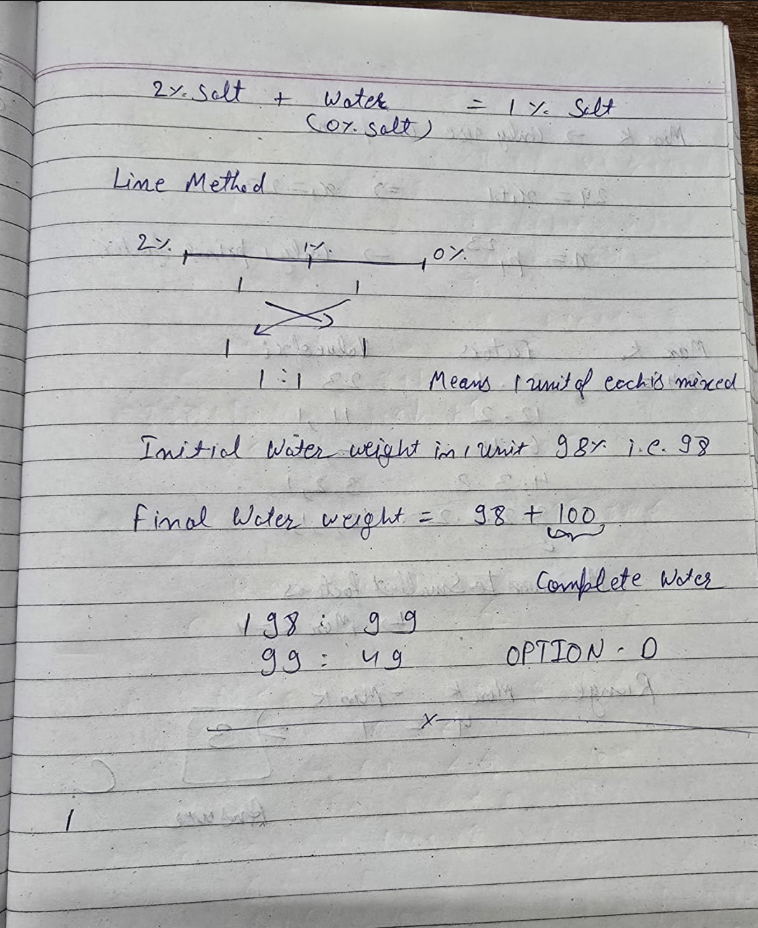 2% Salt + Water = 1% Salt
(0% salt)
Line Method
2% 1% 0%
1 1
1 1
1 : 1 Means 1 unit of each is mixed
Initial Water weight in 1 unit 98% i.e. 98
Final Water weight = 98 + 100
Complete Water
198 : 99
99 : 49 OPTION - D
x